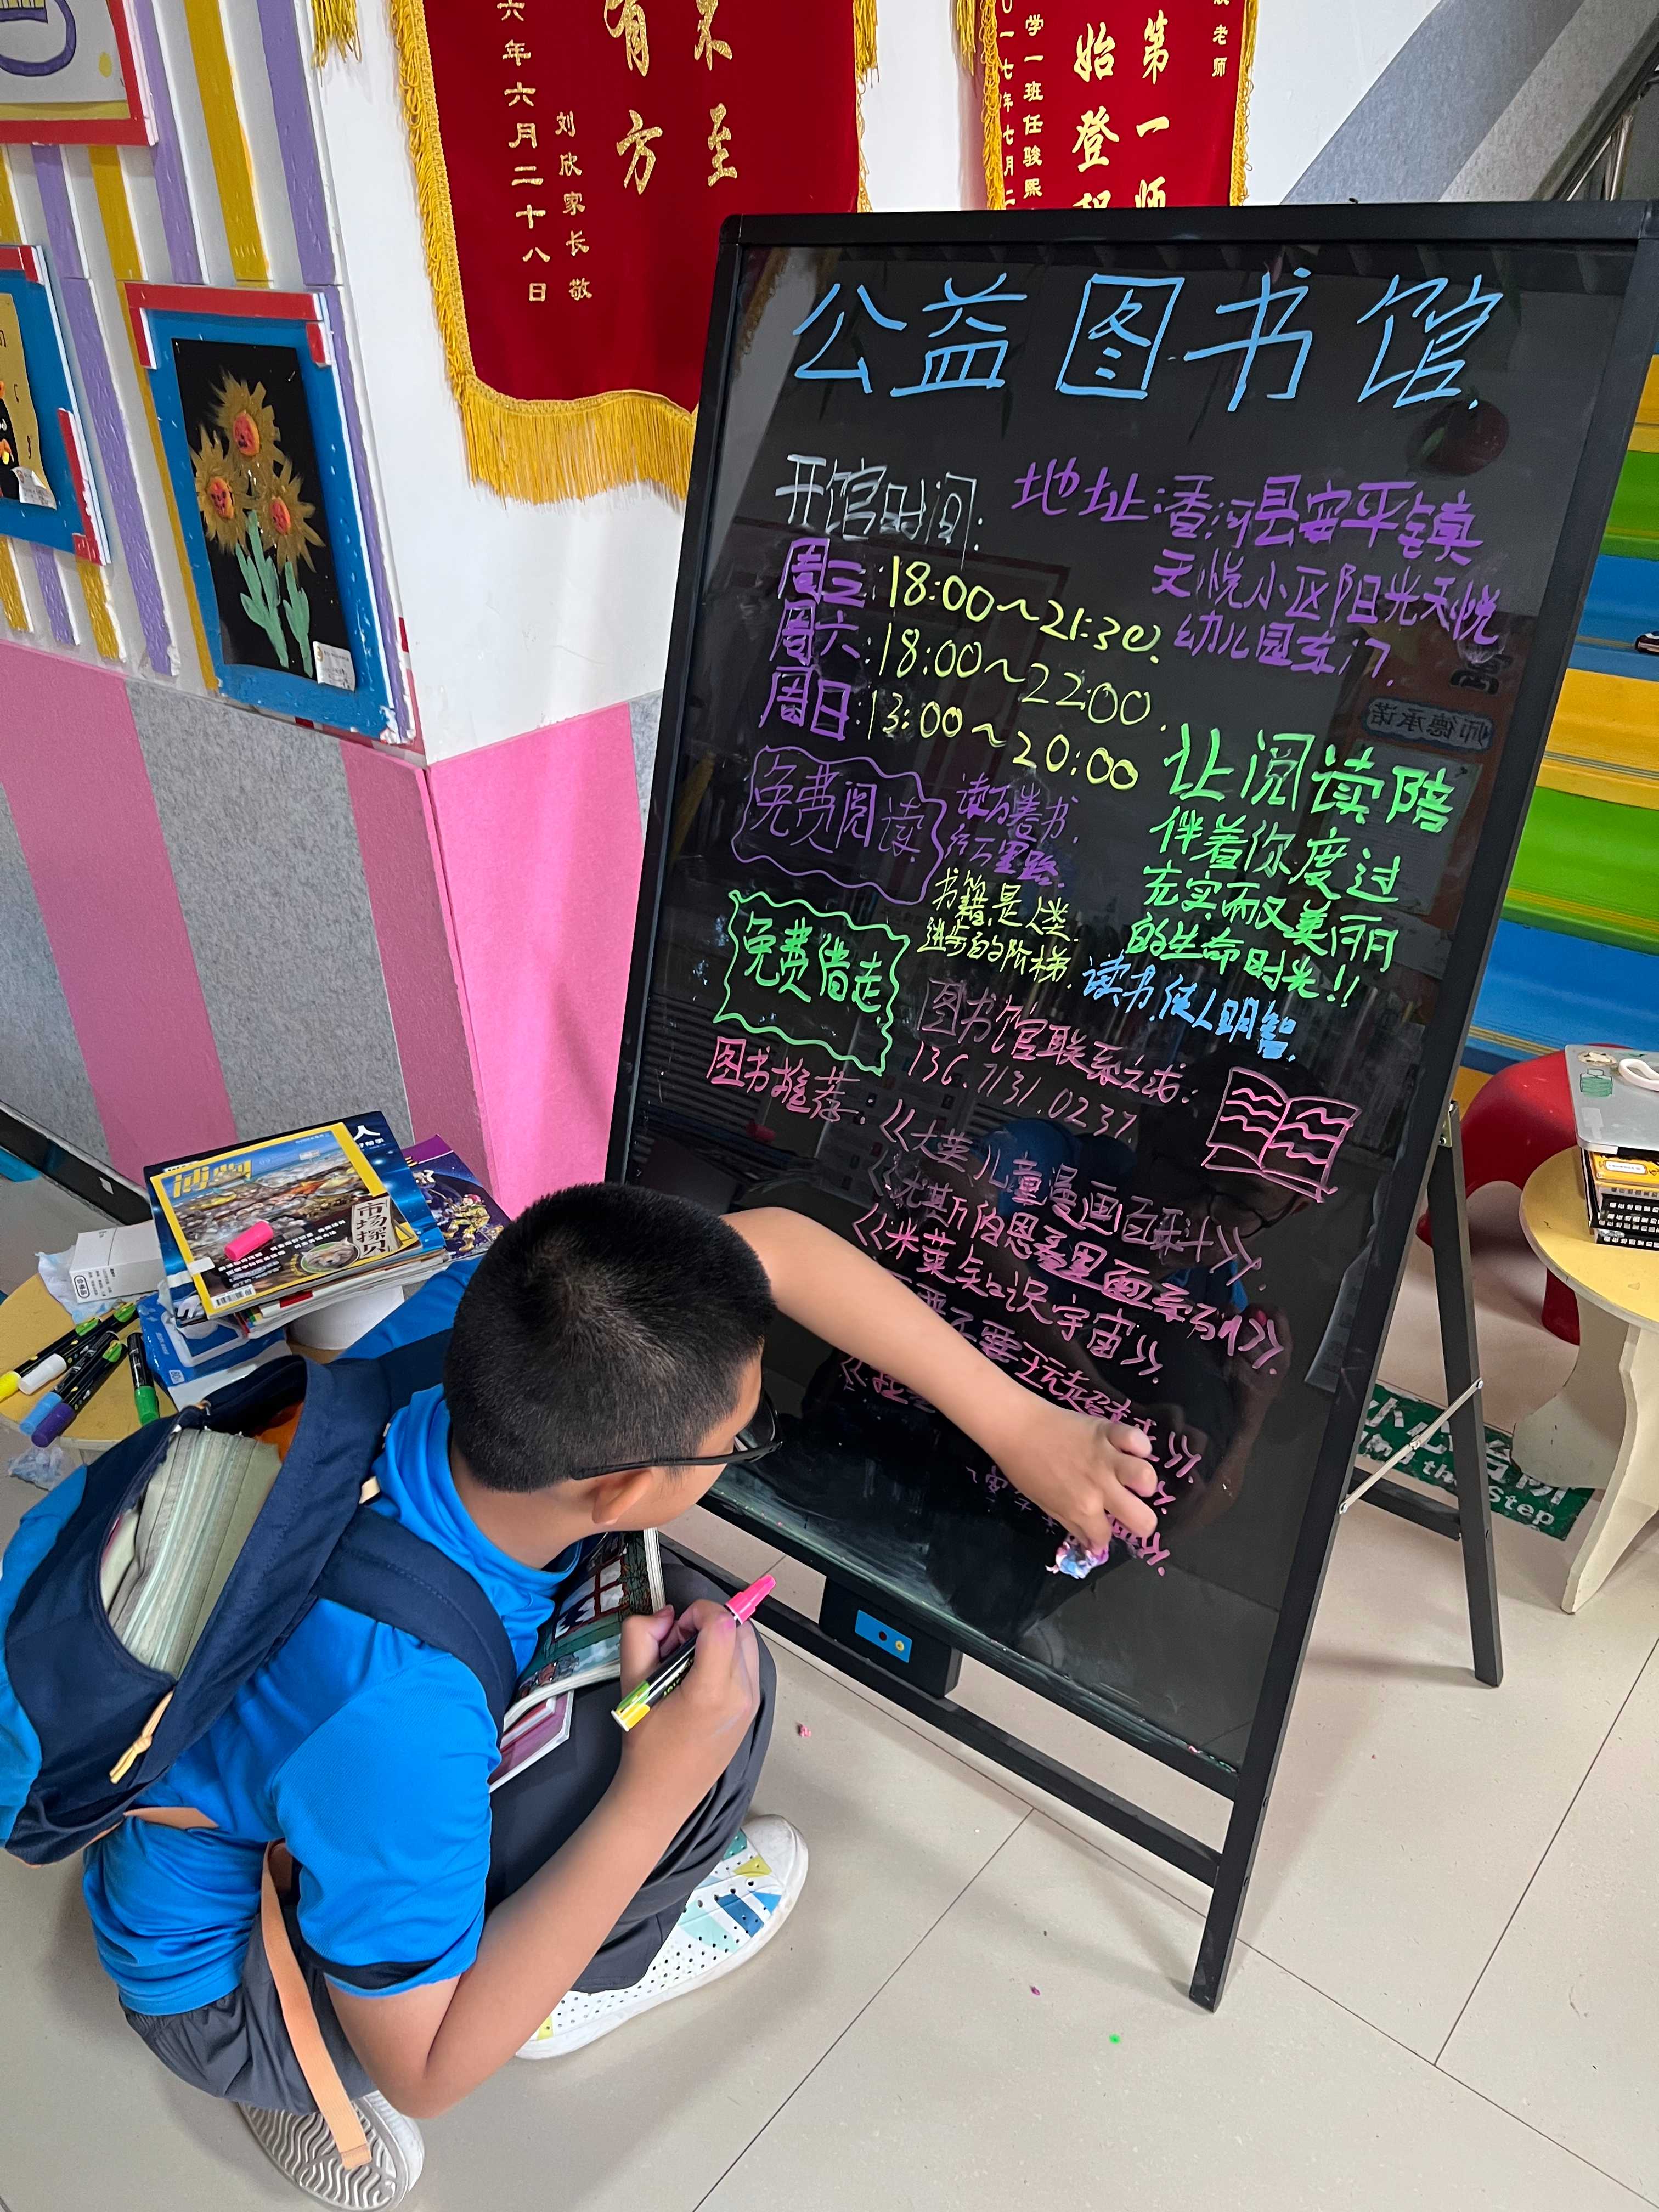 六年六月二十八日
刘欣家长敬
有方
至
第一师
始登
学一班任骏熙
老师
公益图书馆.
开馆时间:
周三:18:00~21:30.
周六:18:00~22:00.
周日:13:00~20:00
地址:香河县安平镇
天悦小区阳光天悦
幼儿园东门.
免费阅读.
读万卷书.
行万里路.
让阅读陪
伴着你度过
充实而又美丽
的生命时光!!
免费借走.
书籍是人类.
进步的阶梯.
读书.使人明智.
图书馆联系方式:
136.7131.0237.
图书推荐:
《大英儿童漫画百科》
《尤斯伯恩看里面系列》
《米莱知识宇宙》
师德承诺
博物
市场探贝
小心台阶
Mind the Step